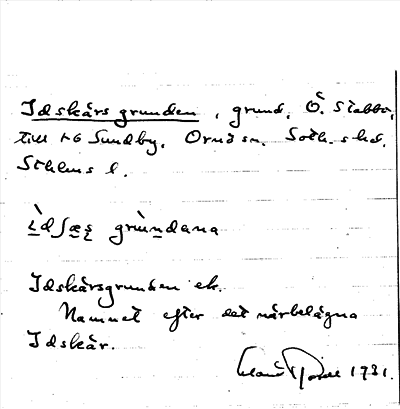 Idskärsgrunden, grund, Ö. Stabbo,
till 1/6 Sundby. Ornö sn. Soth. shd.
Sthlms l.
ì̱dʃæ̱ʂ grùṉdana
Idskärsgrunden ek.
Namnet efter det närbelägna
Idskär.
1931.